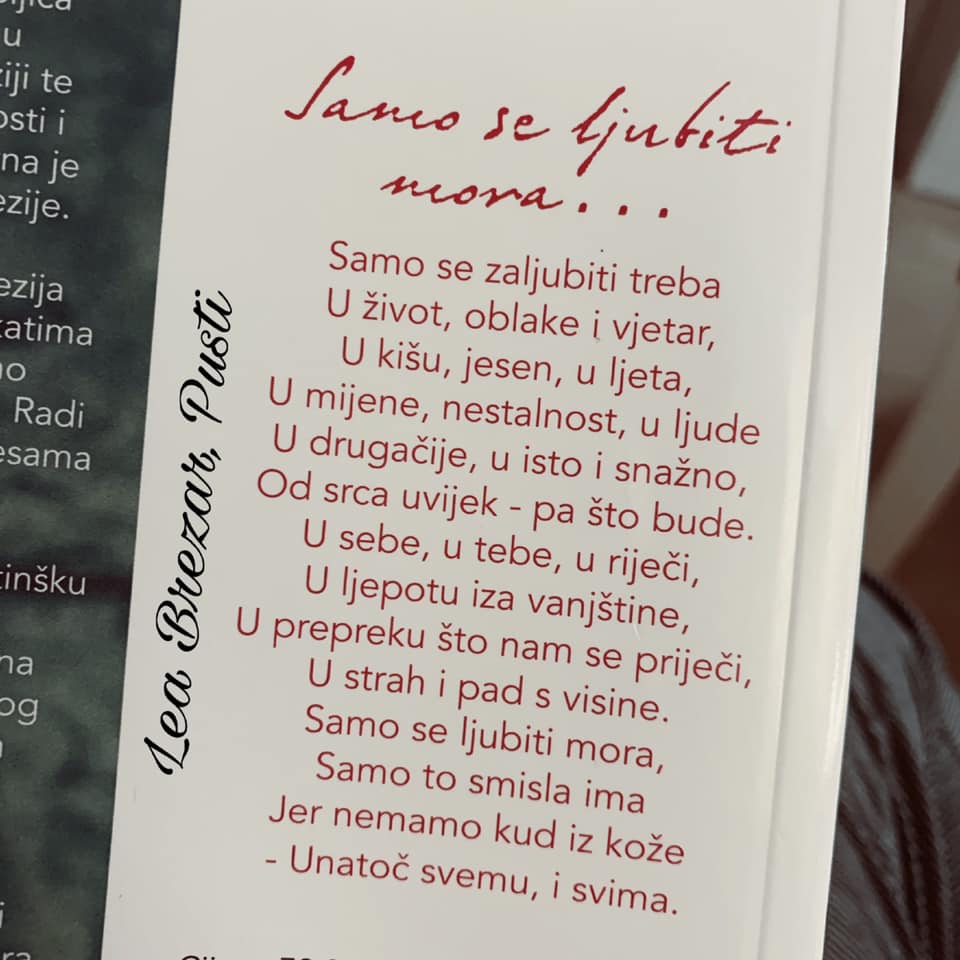 u
iji te
osti i
na je
ezije.
ezija
katima
no
Radi
esama
tinšku
na
og
Lea Brezar, Pusti
Samo se ljubiti
mora...
Samo se zaljubiti treba
U život, oblake i vjetar,
U kišu, jesen, u ljeta,
U mijene, nestalnost, u ljude
U drugačije, u isto i snažno,
Od srca uvijek - pa što bude.
U sebe, u tebe, u riječi,
U ljepotu iza vanjštine,
U prepreku što nam se priječi,
U strah i pad s visine.
Samo se ljubiti mora,
Samo to smisla ima
Jer nemamo kud iz kože
- Unatoč svemu, i svima.